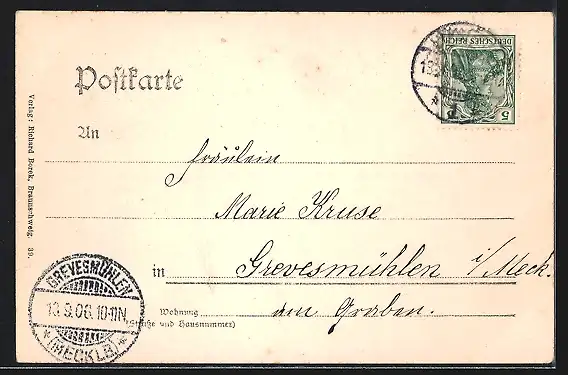 Postkarte
An
Fräulein
Marie Kruse
in Grevesmühlen i/Meck.
Wohnung am Graben.
(Straße und Hausnummer)
Verlag: Richard Borek, Braunschweig 39.
GREVESMÜHLEN
13.9.06.10-11N
(MECKLB)
DEUTSCHES REICH
5